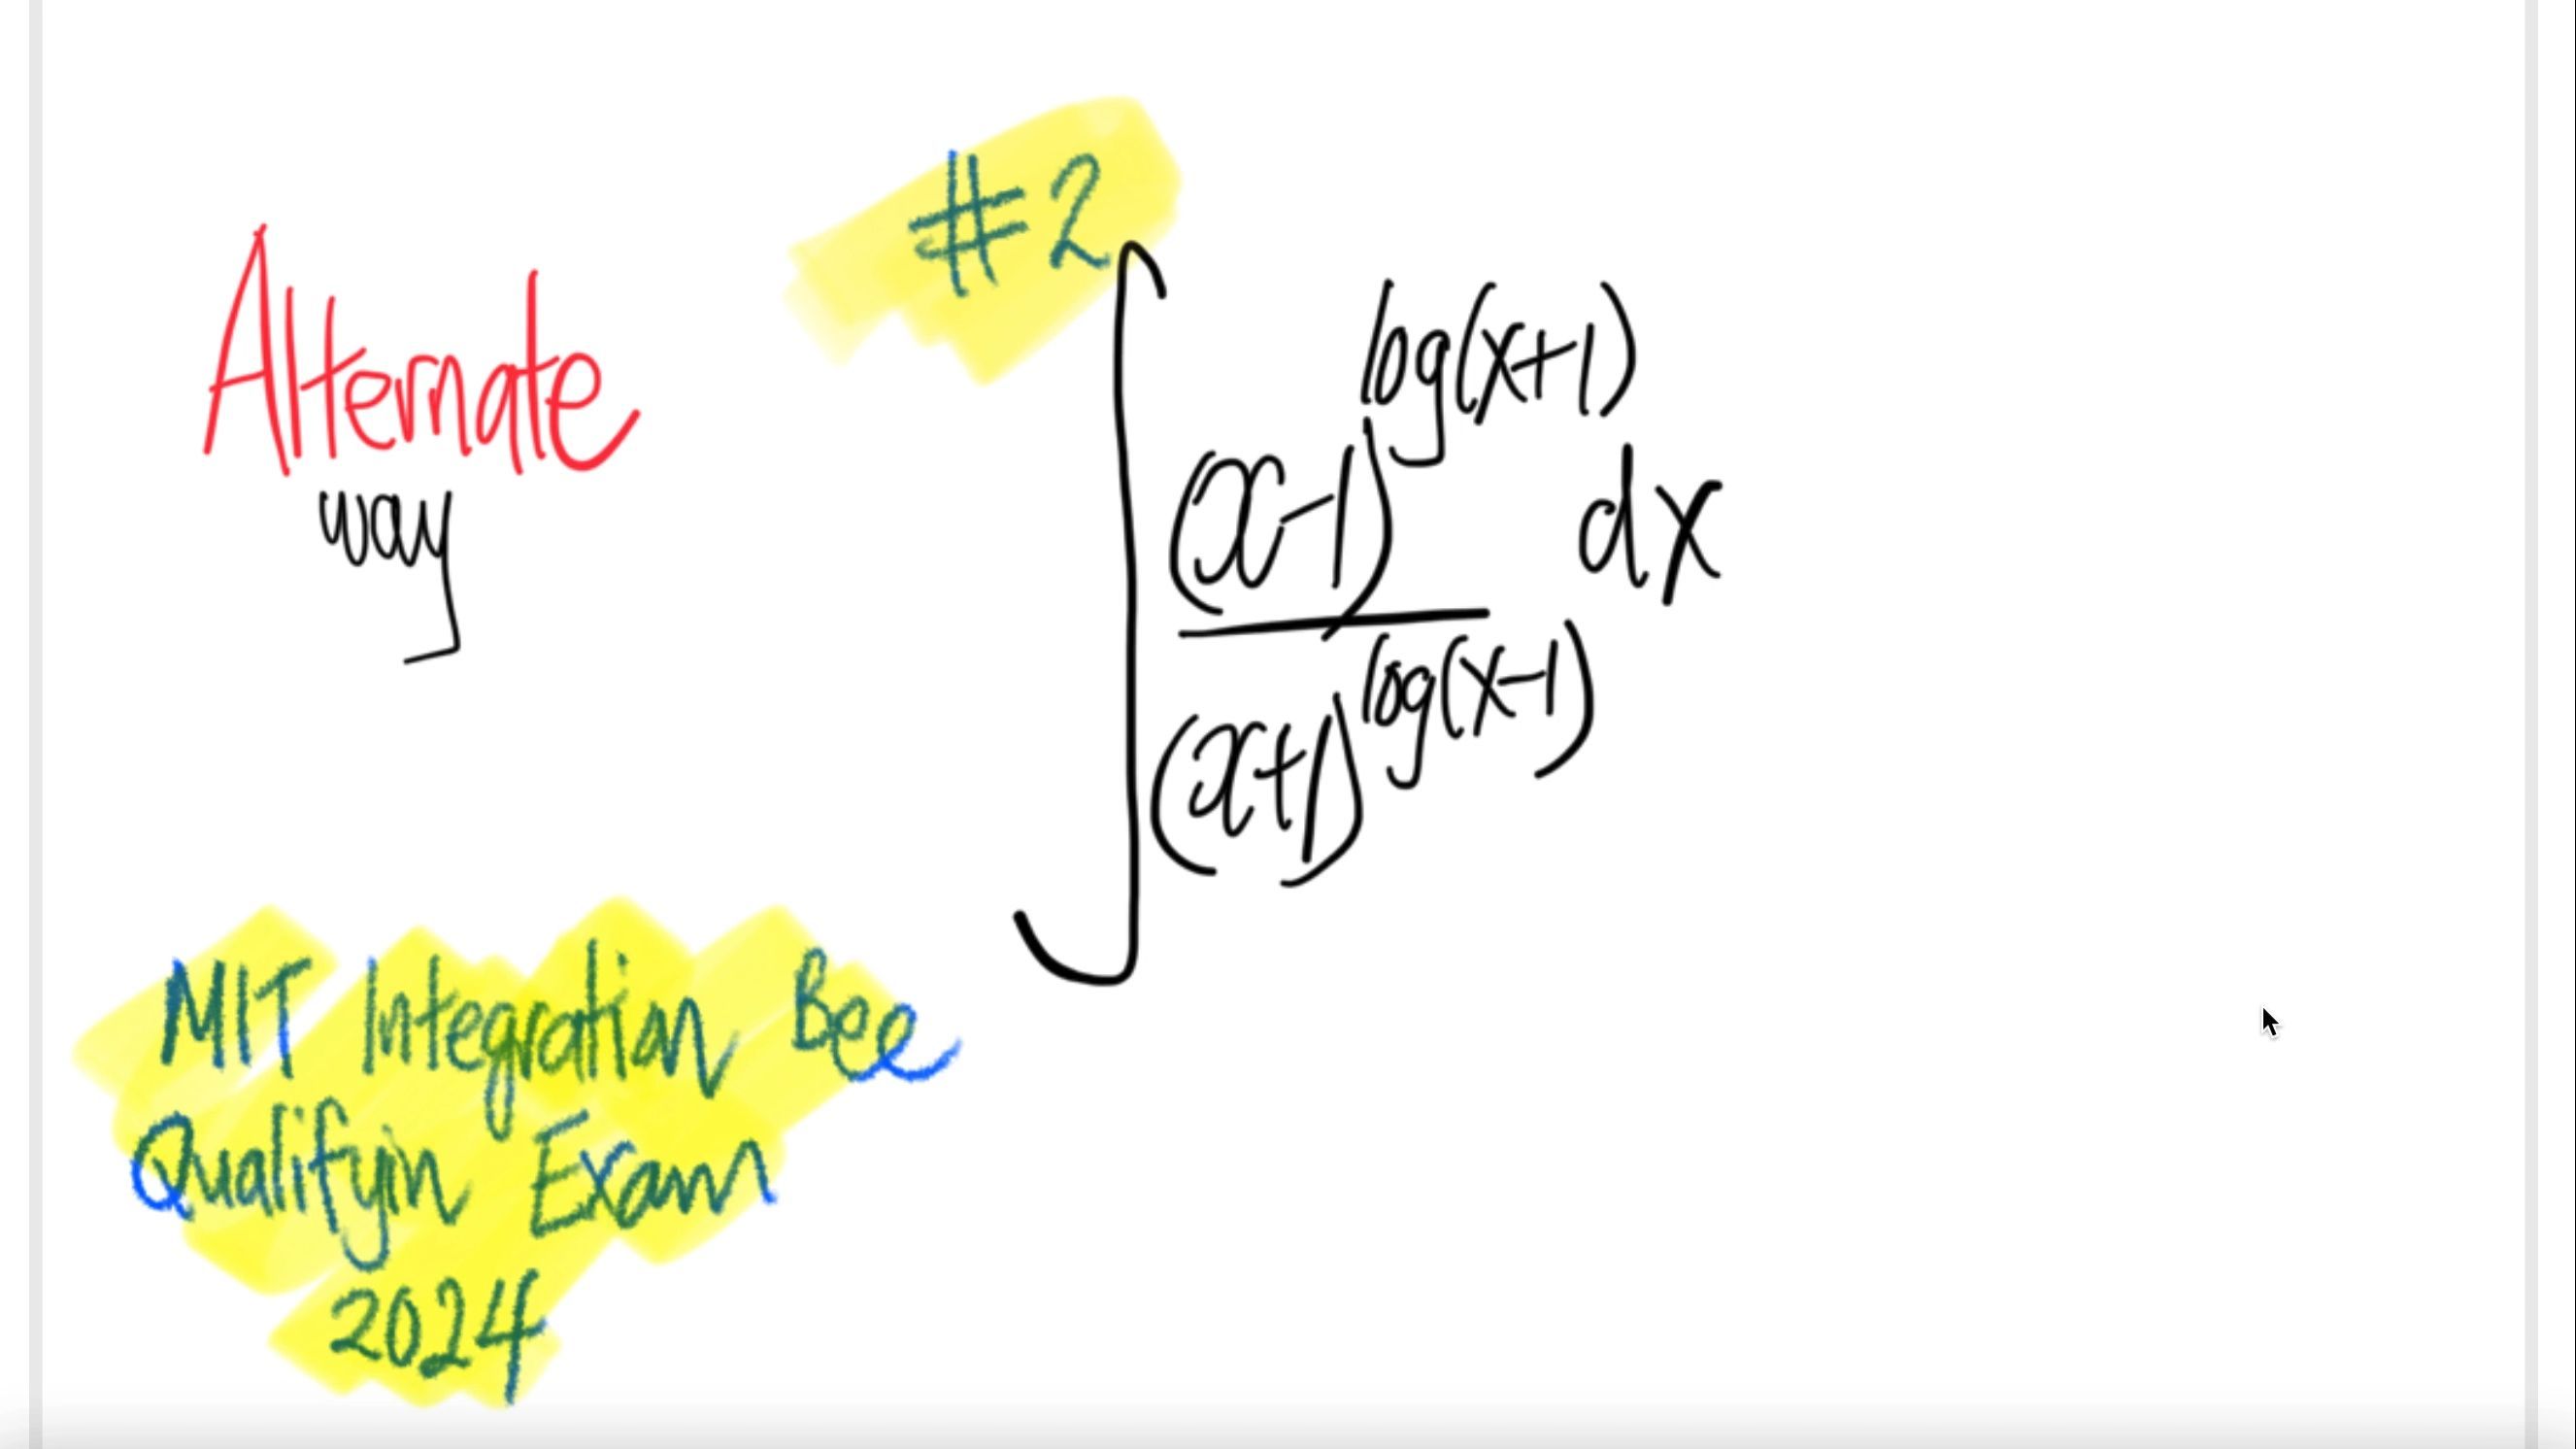 #2
Alternate
way
∫ (x-1)^log(x+1) / (x+1)^log(x-1) dx
MIT Integration Bee
Qualifyin Exam
2024